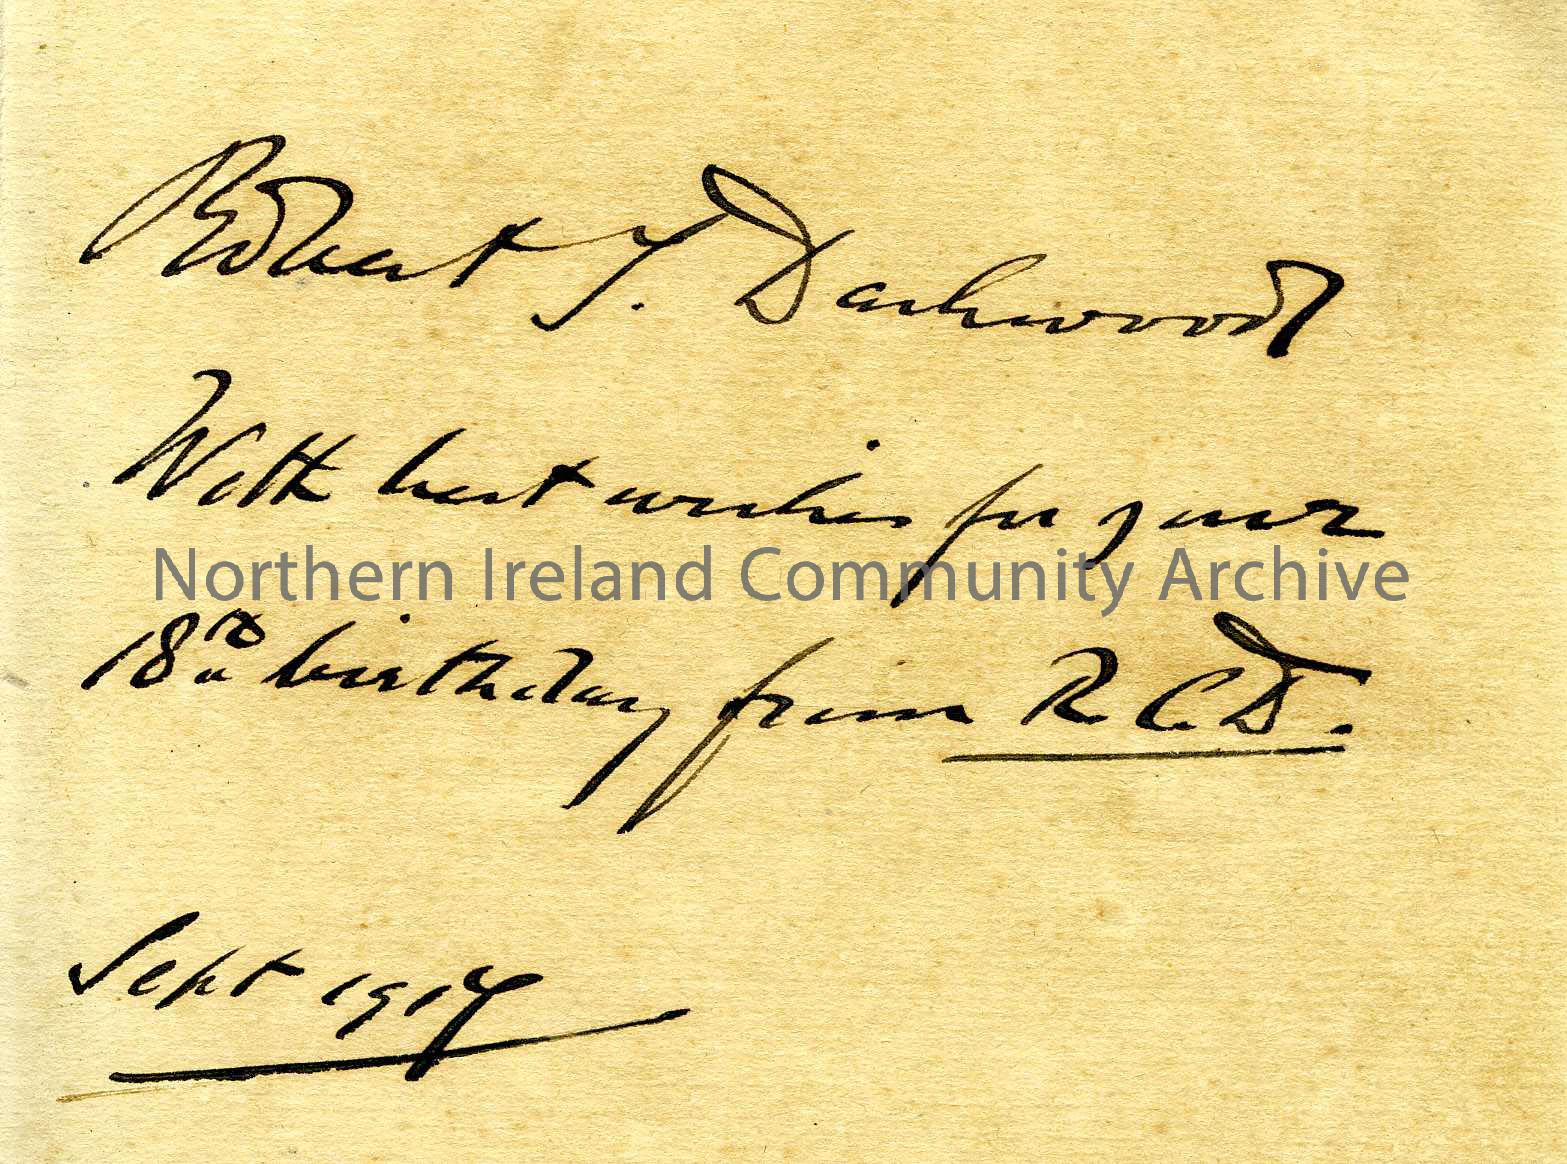 Robert T. Dashwood
With best wishes for your
Northern Ireland Community Archive
18th birthday from R.C.D.
Sept 1917